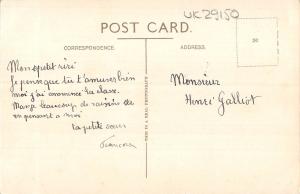 UK29150
POST CARD.
CORRESPONDENCE.
Mon petit riri
Je pense que tu t'amuses bien
moi j'ai commencé la classe.
Mange beaucoup de raisin
en pensant a moi
ta petite sœur
THIS IS A REAL PHOTOGRAPH
Monsieur
Henri Galliot